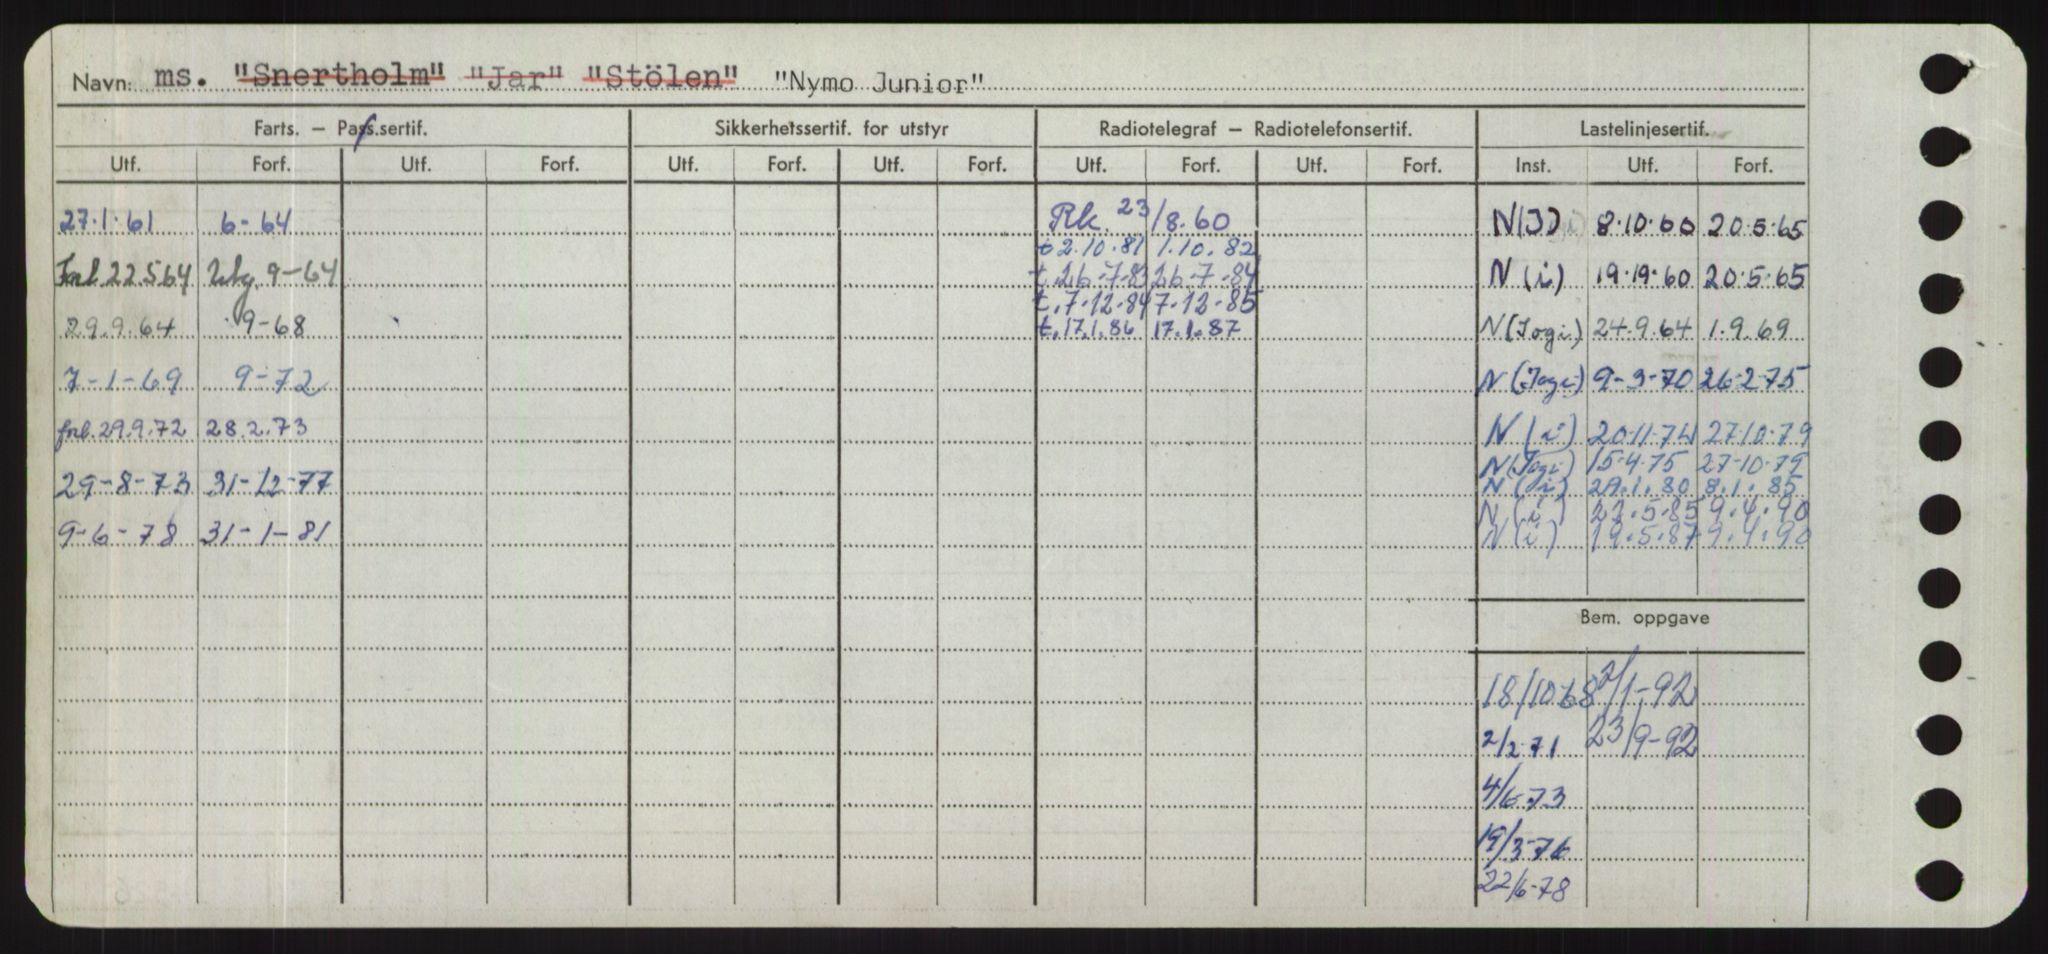 Navn: ms. "Snertholm" "Jar" "Stölen" "Nymo Junior"
Farts. – Pass.sertif. Sikkerhetssertif. for utstyr Radiotelegraf – Radiotelefonsertif. Lastelinjesertif.
Utf. Forf. Utf. Forf. Utf. Forf. Utf. Forf. Utf. Forf. Utf. Forf. Inst. Utf. Forf.
27.1.61 6-64 Rk. 23/8.60 N(J) 8.10.60 20.5.65
t 2.10.81 1.10.82
Forl. 22.5.64 9-64 t. 26.7.83 26.7.84 N(i) 19.19.60 20.5.65
t. 7.12.84 7.12.85
29.9.64 9-68 t. 17.1.86 17.1.87 N(Jogi) 24.9.64 1.9.69
7-1-69 9-72 N(Jogi) 9-3-70 26-2-75
forl. 29.9.72 28.2.73 N(i) 20.11.74 27.10.79
N(Jogi) 15.4.75 27-10.79
29-8-73 31-12-77 N(i) 29.1.80 8.1.85
N(i) 22.5.85 9.4.90
9-6-78 31-1-81 N(i) 19.5.87 9.4.90
Bem. oppgave
18/10 68 2/1-92
2/2-71 23/9-92
4/6-73
19/3-76
22/6-78